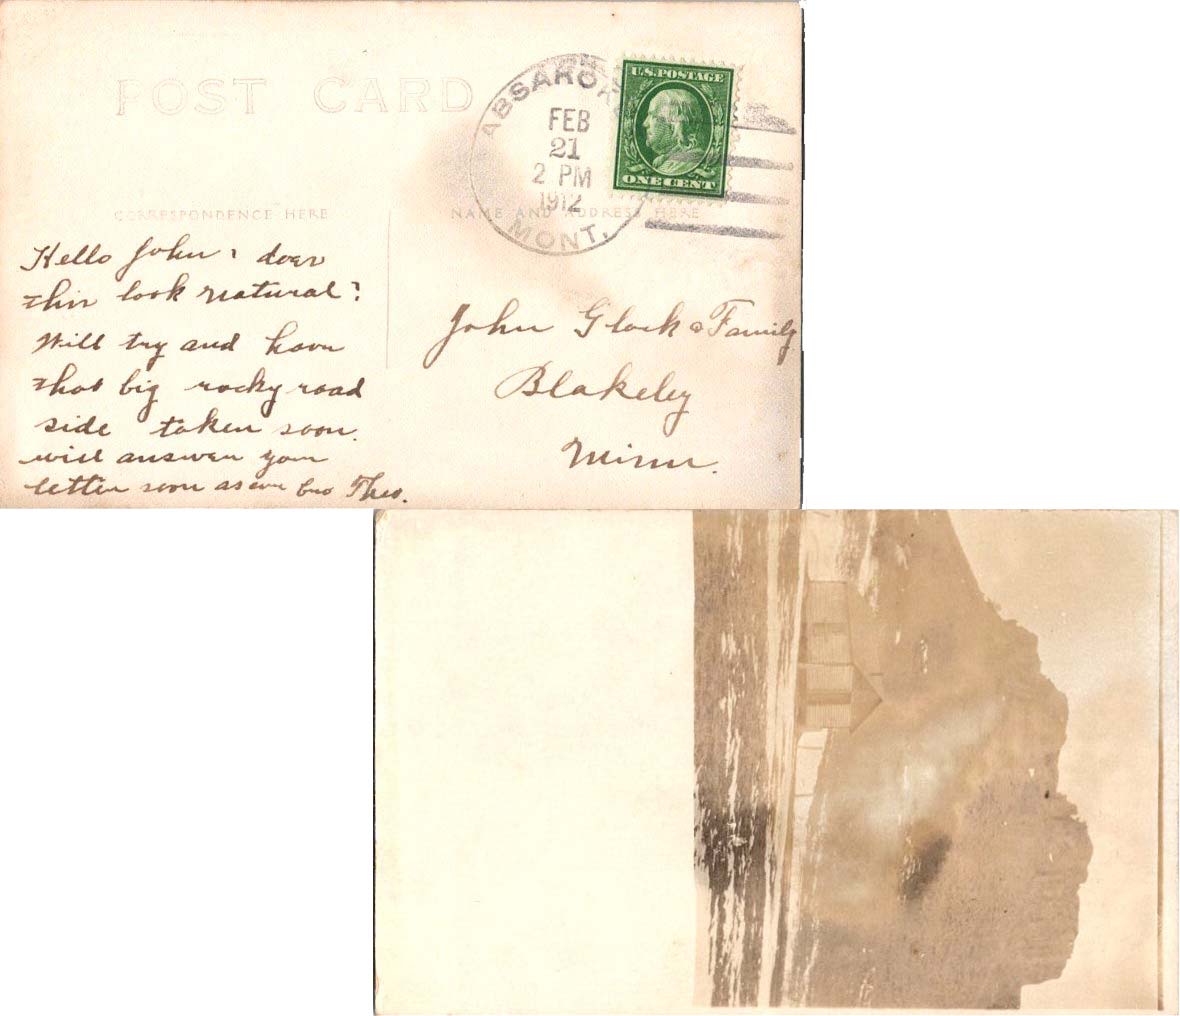 POST CARD
ABSAROKEE
FEB
21
2 PM
1912
MONT.
U.S. POSTAGE
ONE CENT
CORRESPONDENCE HERE
NAME AND ADDRESS HERE
Hello John, does
this look natural?
Will try and have
that big rocky road
side taken soon.
will answer your
letter soon as ever bro Theo.
John Glock & Family
Blakeley
Minn.